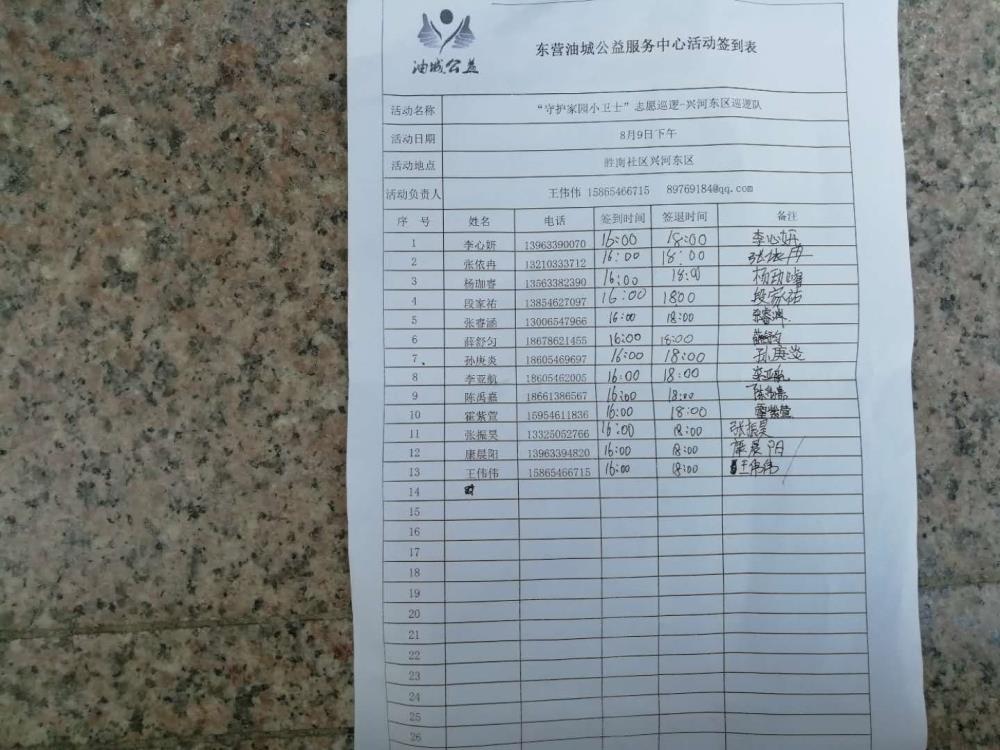 油城公益
东营油城公益服务中心活动签到表
活动名称 “守护家园小卫士”志愿巡逻-兴河东区巡逻队
活动日期 8月9日下午
活动地点 胜南社区兴河东区
活动负责人 王伟伟 15865466715 89769184@qq.com
序 号 姓名 电话 签到时间 签退时间 备注
1 李心妍 13963390070 16:00 18:00 李心妍
2 张依冉 13210333712 16:00 18:00 张依冉
3 杨珈睿 13563382390 16:00 18:00
4 段家祐 13854627097 16:00 1800 段家祐
5 张睿涵 13006547966 16:00 18:00
6 薛舒匀 18678621455 16:00 18:00
7 孙庚炎 18605469697 16:00 18:00 孙庚炎
8 李亚航 18605462005 16:00 18:00 李亚航
9 陈禹嘉 18661386567 16:00 18:00 陈禹嘉
10 霍紫萱 15954611836 16:00 18:00 霍紫萱
11 张振昊 13325052766 16:00 18:00 张振昊
12 康晨阳 13963394820 16:00 18:00 康晨阳
13 王伟伟 15865466715 16:00 18:00 王伟伟
14
15
16
17
18
19
20
21
22
23
24
25
26